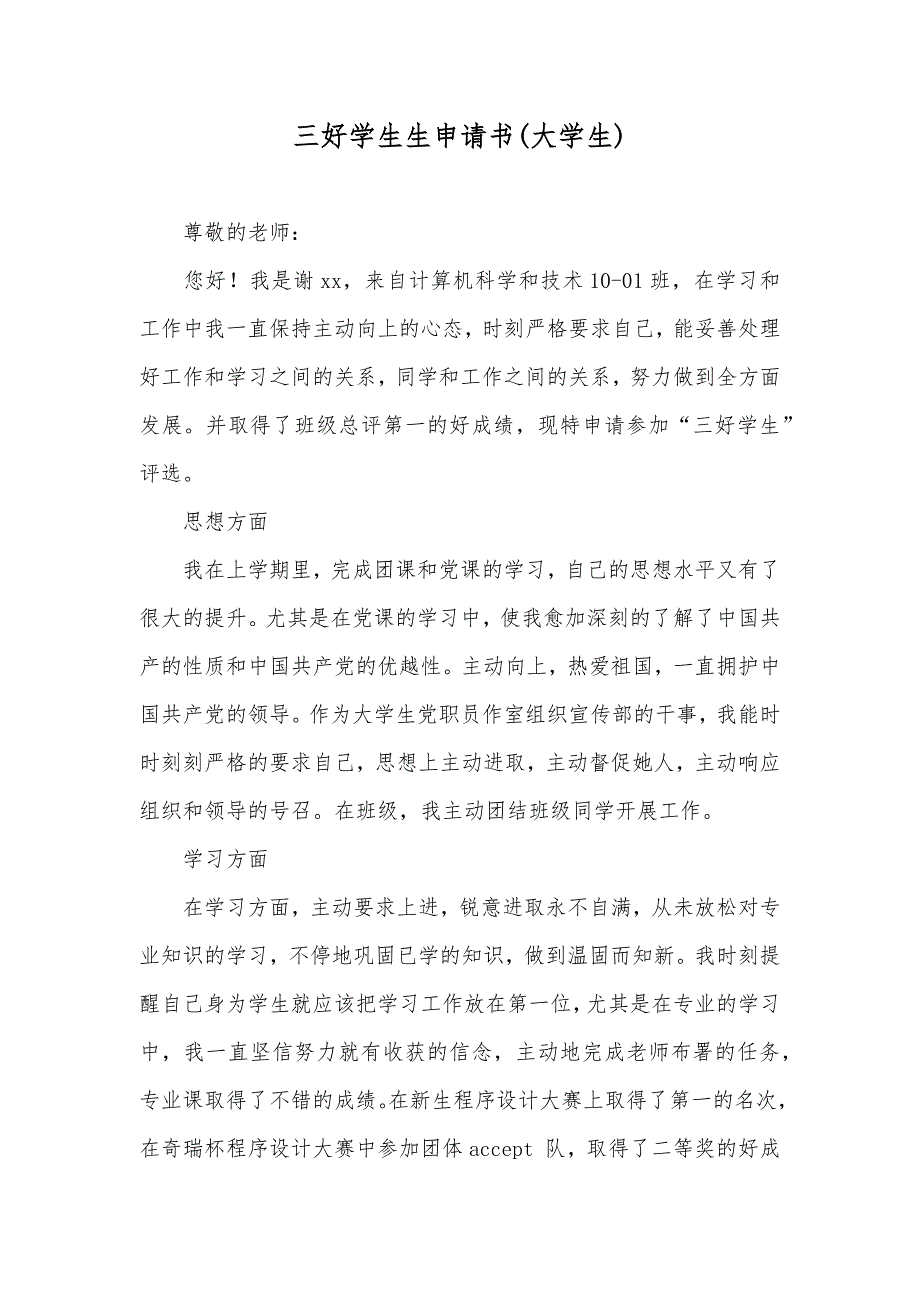 三好学生生申请书(大学生)
尊敬的老师：
您好！我是谢xx，来自计算机科学和技术10-01班，在学习和
工作中我一直保持主动向上的心态，时刻严格要求自己，能妥善处理
好工作和学习之间的关系，同学和工作之间的关系，努力做到全方面
发展。并取得了班级总评第一的好成绩，现特申请参加“三好学生”
评选。
思想方面
我在上学期里，完成团课和党课的学习，自己的思想水平又有了
很大的提升。尤其是在党课的学习中，使我愈加深刻的了解了中国共
产的性质和中国共产党的优越性。主动向上，热爱祖国，一直拥护中
国共产党的领导。作为大学生党职员作室组织宣传部的干事，我能时
时刻刻严格的要求自己，思想上主动进取，主动督促她人，主动响应
组织和领导的号召。在班级，我主动团结班级同学开展工作。
学习方面
在学习方面，主动要求上进，锐意进取永不自满，从未放松对专
业知识的学习，不停地巩固已学的知识，做到温固而知新。我时刻提
醒自己身为学生就应该把学习工作放在第一位，尤其是在专业的学习
中，我一直坚信努力就有收获的信念，主动地完成老师布署的任务，
专业课取得了不错的成绩。在新生程序设计大赛上取得了第一的名次，
在奇瑞杯程序设计大赛中参加团体accept 队，取得了二等奖的好成